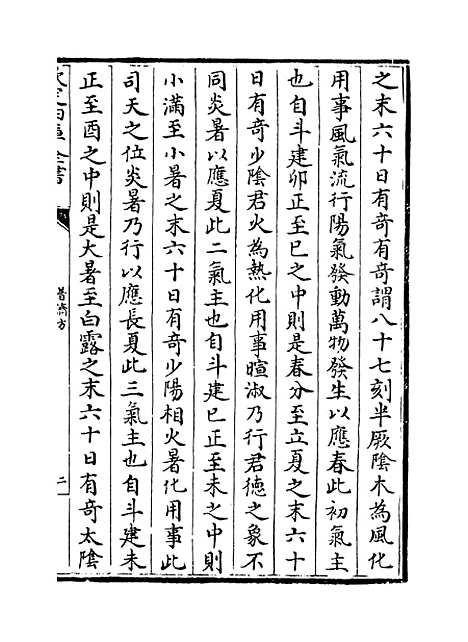 之末六十日有奇有奇謂八十七刻半厥陰木為風化
用事風氣流行陽氣發動萬物發生以應春此初氣主
也自斗建卯正至巳之中則是春分至立夏之末六十
日有奇少陰君火為熱化用事暄淑乃行君徳之象不
同炎暑以應夏此二氣主也自斗建巳正至未之中則
小滿至小暑之末六十日有奇少陽相火暑化用事此
司天之位炎暑乃行以應長夏此三氣主也自斗建未
正至酉之中則是大暑至白露之末六十日有奇太陰
欽定四庫全書
普濟方
二